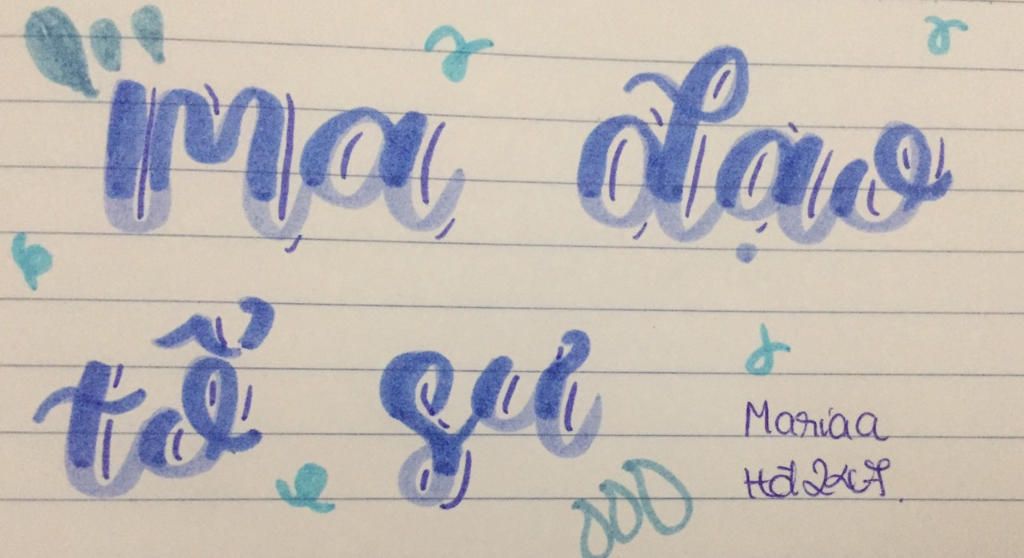 Ma đạo
tổ sư
Mariaa